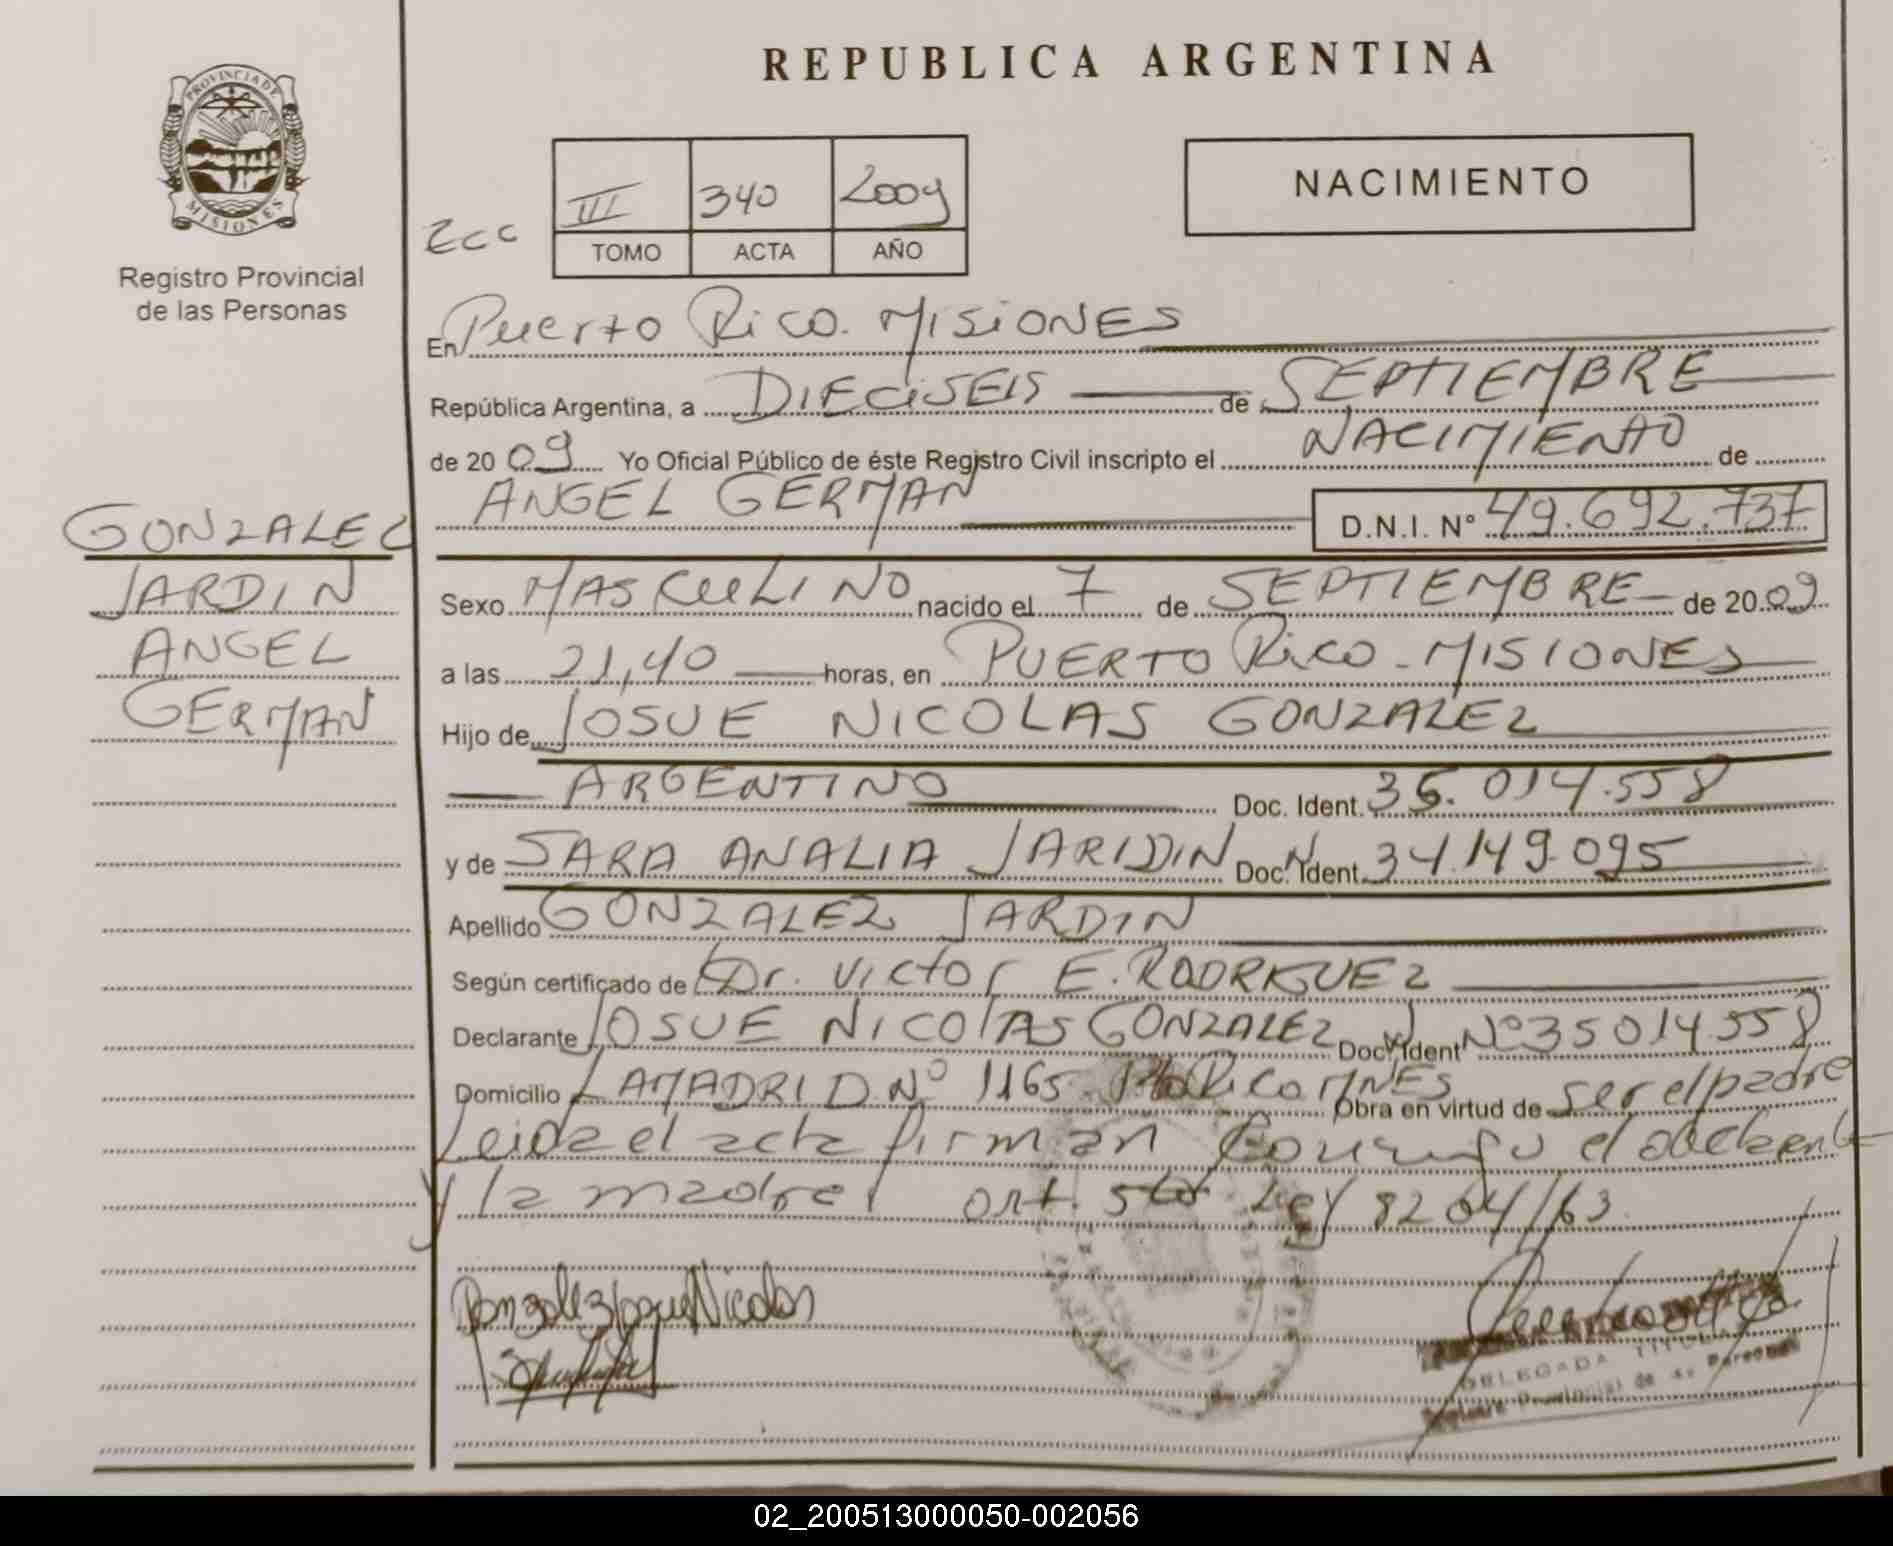 REPUBLICA ARGENTINA
PROVINCIA DE
MISIONES
Registro Provincial
de las Personas
III 340 2009
TOMO ACTA AÑO
NACIMIENTO
En Puerto Rico. MISIONES
República Argentina, a DIECISEIS de SEPTIEMBRE
de 2009 Yo Oficial Público de éste Registro Civil inscripto el NACIMIENTO de
ANGEL GERMAN D.N.I. Nº 49.692.737
GONZALEZ
JARDIN
ANGEL
GERMAN
Sexo MASCULINO nacido el 7 de SEPTIEMBRE de 2009
a las 21,40 horas, en PUERTO RICO - MISIONES
Hijo de JOSUE NICOLAS GONZALEZ
ARGENTINO Doc. Ident. 35.014.558
y de SARA ANALIA JARDIN Doc. Ident. 34.149.095
Apellido GONZALEZ JARDIN
Según certificado de Dr. VICTOR E. RODRIGUEZ
Declarante JOSUE NICOLAS GONZALEZ Doc. Ident Nº 35014.558
Domicilio LAMADRID Nº 1165 Pto Rico MNES Obra en virtud de ser el padre
Leida el acta firman conmigo el declarante
y la madre art. Ley 8204/63
Gonzalez Josue Nicolas
DELEGADA TITULAR
Registro Provincial de las Personas
02_200513000050-002056